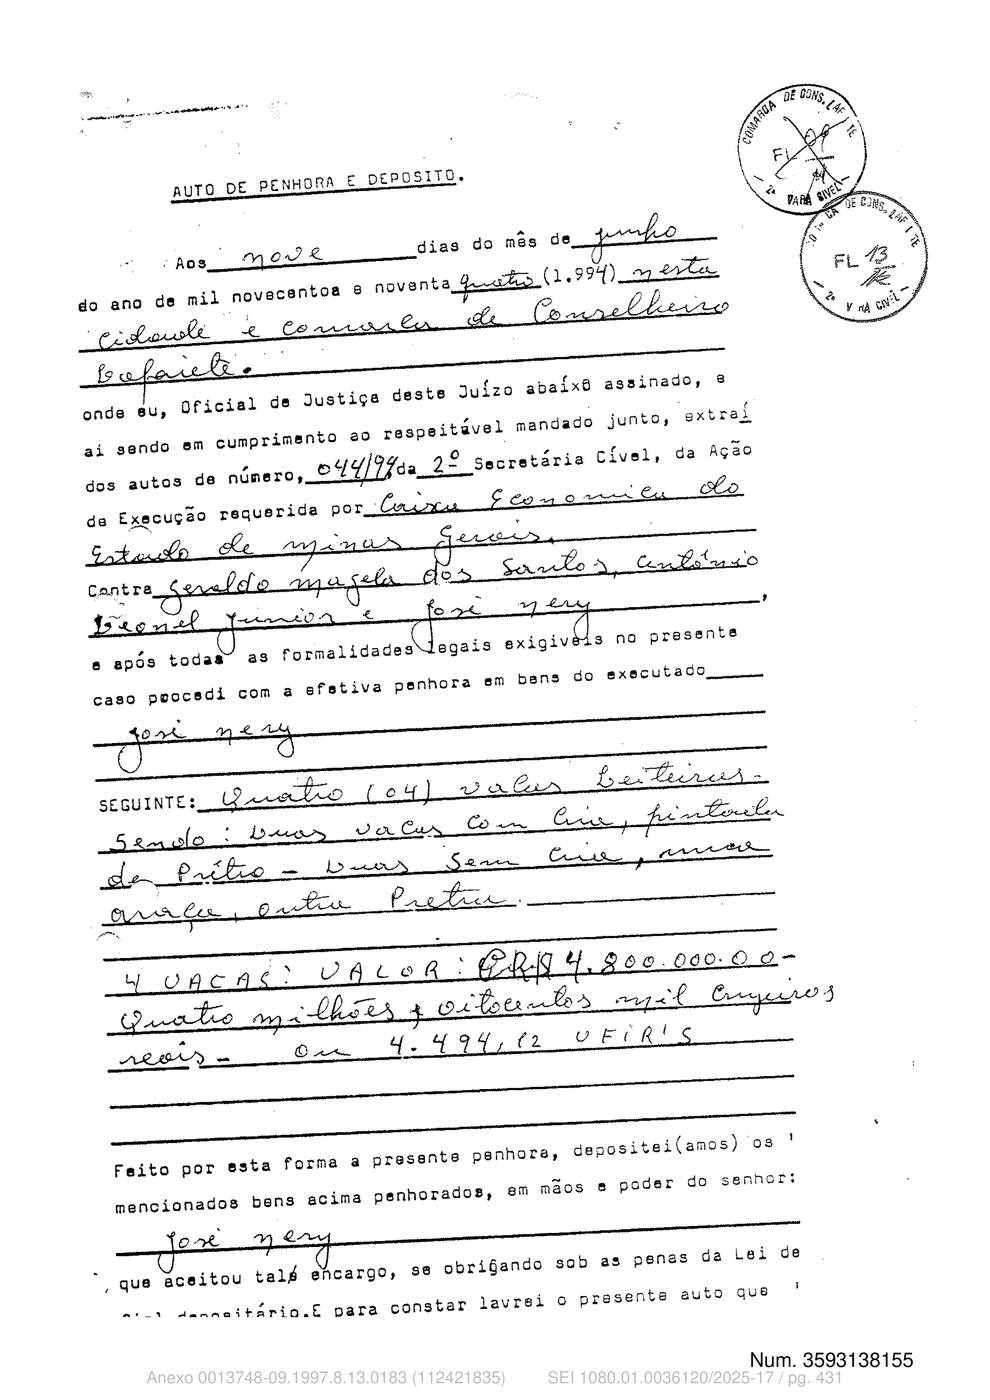 COMARCA DE CONS. LAFAIETE
FL 09
2ª VARA CIVEL
DE CONS. LAFAIETE
FL 13
AUTO DE PENHORA E DEPOSITO.
Aos nove dias do mês de junho
do ano de mil novecentos e noventa quatro (1.994) nesta
Cidade e Comarca de Conselheiro
Lafaiete.
onde eu, Oficial de Justiça deste Juízo abaixo assinado, e
aí sendo em cumprimento ao respeitável mandado junto, extraí
dos autos de número, 044/94 da 2º Secretária Cível, da Ação
de Execução requerida por Caixa Economica do
Estado de minas Gerais.
Contra Geraldo magela dos Santos, Antônio
Leonel Junior e José nery,
e após todas as formalidades legais exigiveis no presente
caso procedi com a efetiva penhora em bens do executado
José nery
SEGUINTE: Quatro (04) vacas Leiteiras-
Sendo: Duas vacas com Cria, pintada
de Prêto - Duas Sem Cria, uma
araça, outra Pretra.
4 VACAS: VALOR: CR$ 4.800.000.00-
Quatro milhões e oitocentos mil Cruzeiros
reais- ou 4.494,12 UFIR'S
Feito por esta forma a presente penhora, depositei(amos) os '
mencionados bens acima penhorados, em mãos e poder do senhor:
José nery
que aceitou tal encargo, se obrigando sob as penas da Lei de
depositário.E para constar lavrei o presente auto que '
Num. 3593138155
Anexo 0013748-09.1997.8.13.0183 (112421835) SEI 1080.01.0036120/2025-17 / pg. 431